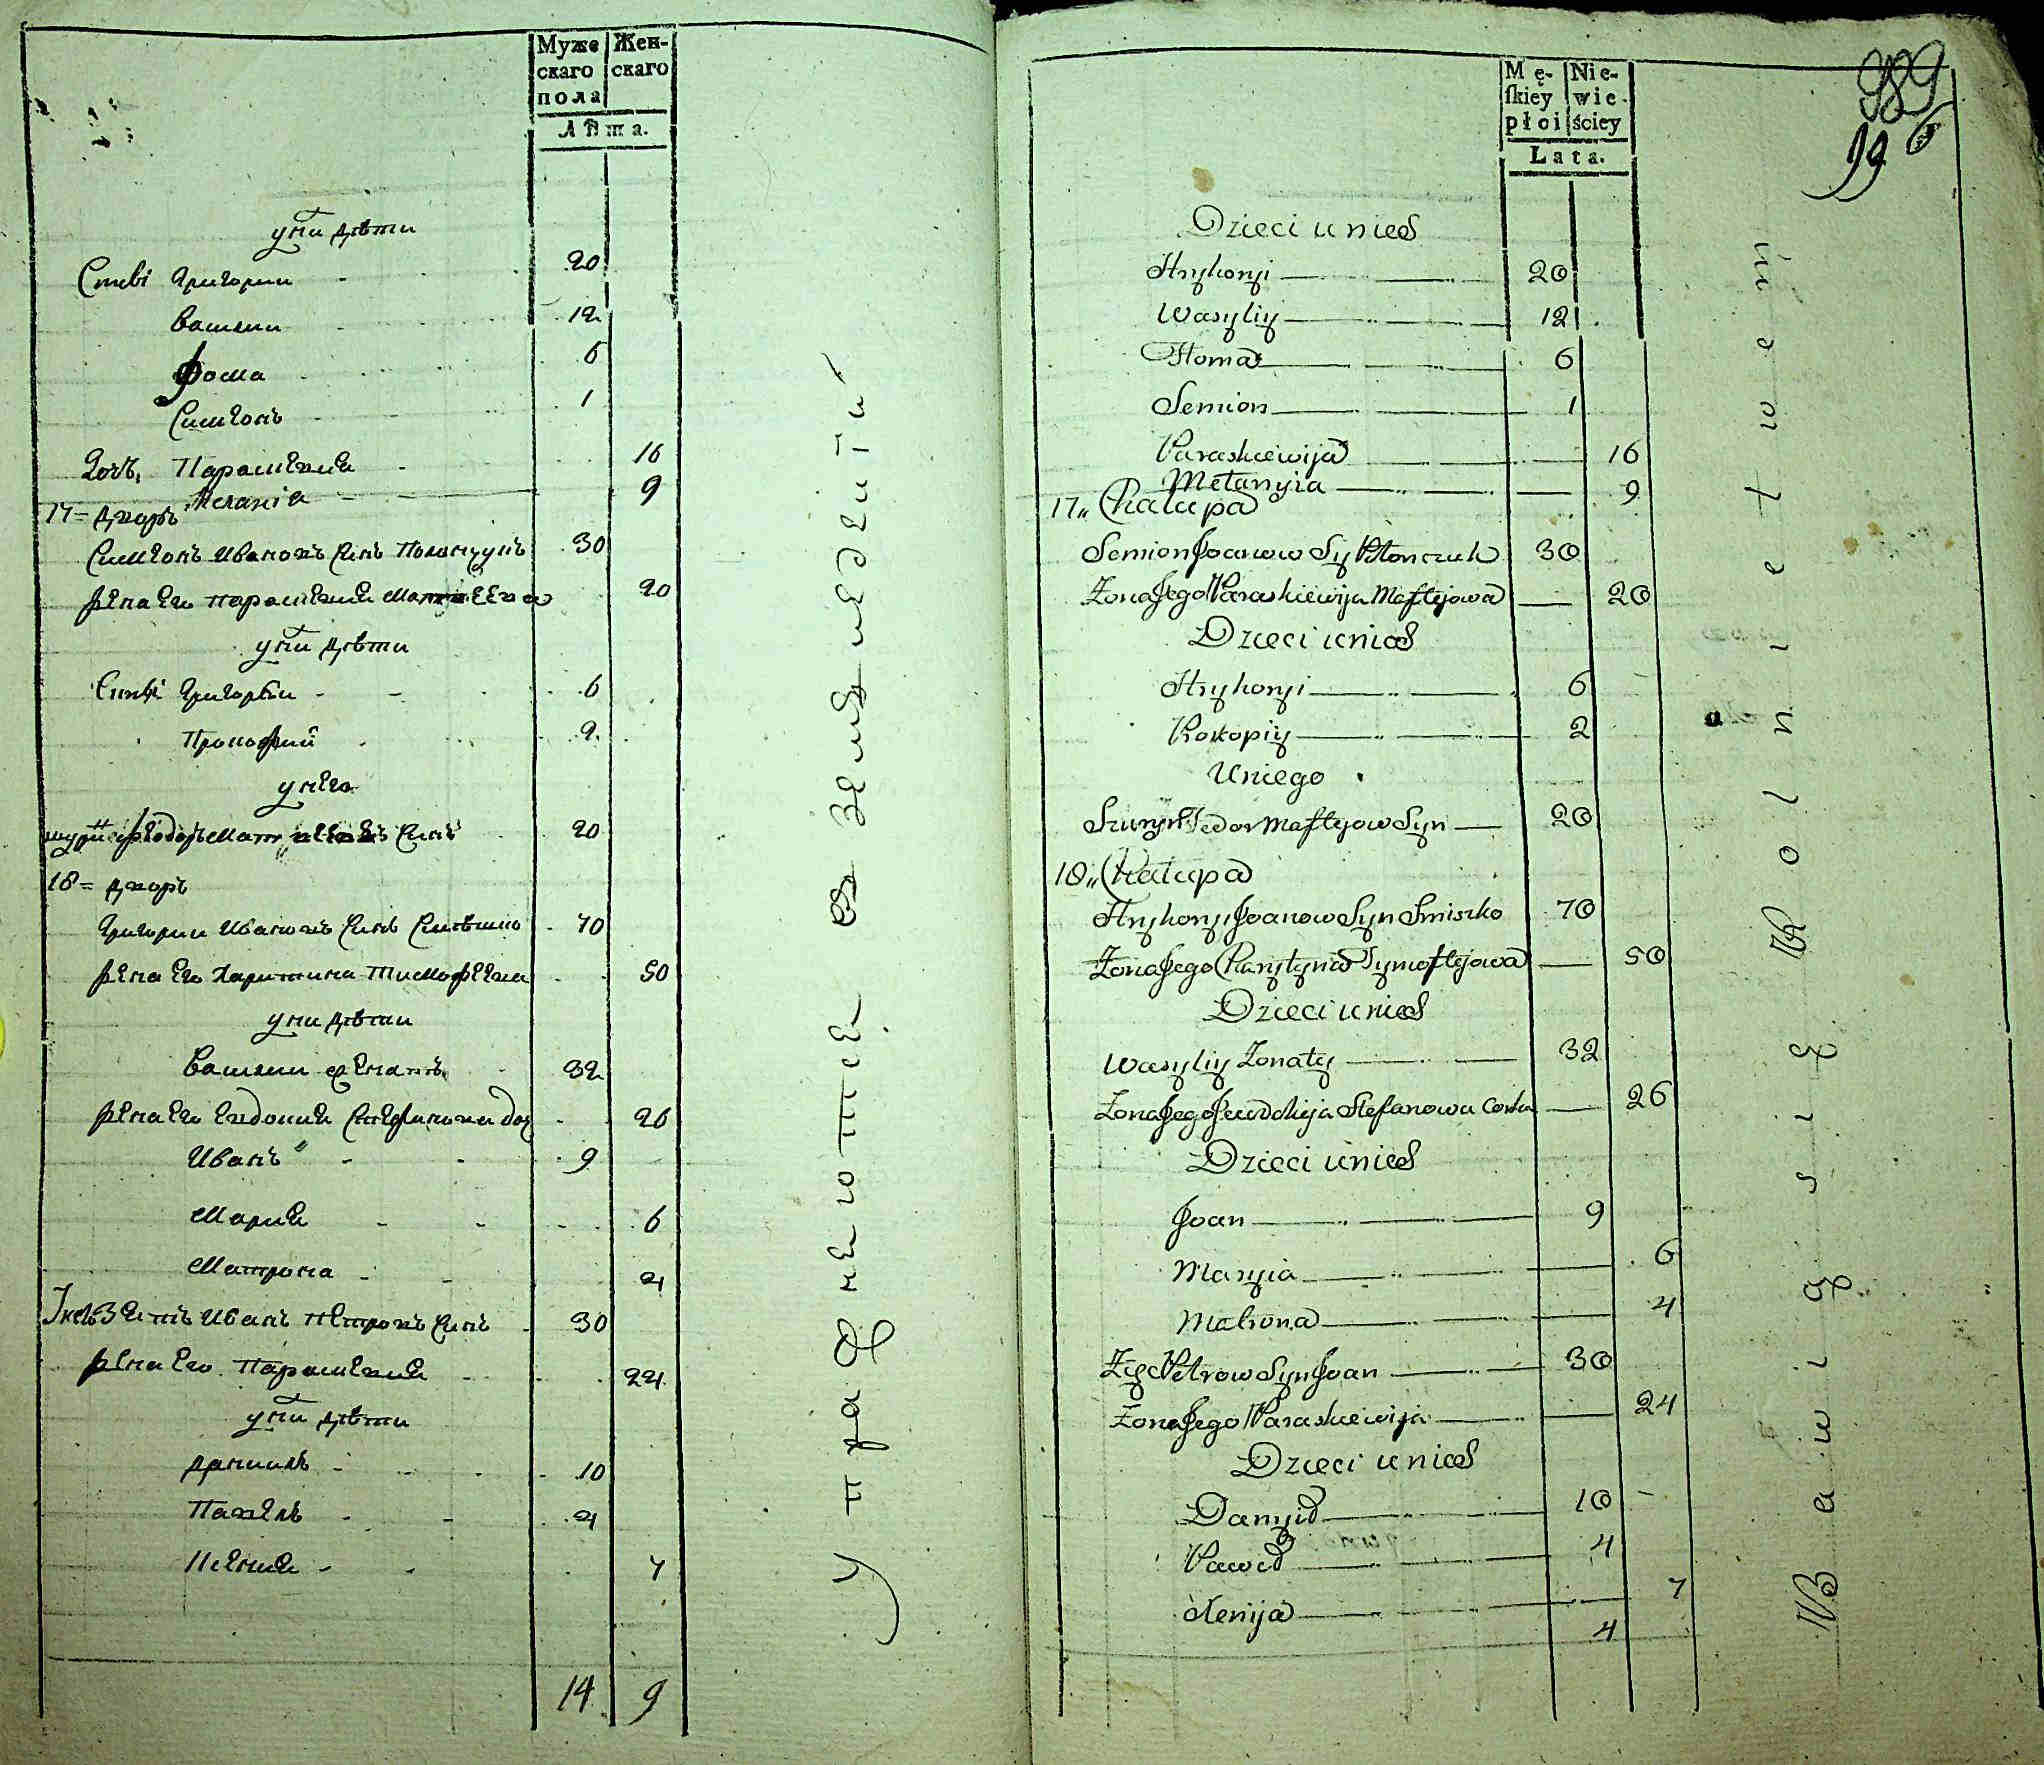 Муже
скаго
пола
Жен-
скаго
Лѣта.
у нй дѣти
Снвi Григории 20
Василии 12
Фома 6
Симеонъ 1
Дочь Параскевия 16
Меланiя 9
17 = дворъ
Симеонъ Ивановъ Синъ 30
жена его Параскевия 20
у нй дѣти
Григорѣи 6
Прокофий 2
у него
Феодоръ Синъ 20
18 = дворъ
Григории Ивановъ Синъ 70
жена его Харитина Тимофеева 50
у ни дѣти
Василии женатъ 32
жена его Евдокия Стефанова доч 26
Иванъ 9
Мария 6
Матрона 4
Зять Иванъ Петровъ Синъ 30
жена его Параскевия 24
у нй дѣти
Даниилъ 10
Павелъ 4
7
14 9
упражняются в земледелїи
Mę-
ſkiey
płci
Nie-
wie-
ściey
Lata.
389
196
Dzieci u nich
Hryhoryi 20
Wasyliy 12
Homa 6
Semion 1
Paraskiewija 16
Metanyia 9
17,, Chalupa
Semion Joanow Sy 30
Zona Jego Paraskiewija Maftejowa 20
Dzieci u nich
Hryhoryi 6
Prokopiy 2
U niego
Szuryn Fedor Maftejow Syn 20
18,, Chalupa
Hryhoryi Joanow Syn Smiszko 70
Zona Jego Charytyna Tymoftejowa 50
Dzieci u nich
Wasyliy Zonaty 32
Zona Jego Jewdokija Stefanowa Corka 26
Dzieci u nich
Joan 9
Maryia 6
Matrona 4
Zięc Petrow Syn Joan 30
Zona Jego Paraskiewija 24
Dzieci u nich
Danyił 10
Paweł 4
Xenija 7
4
Bawią się Rolnictwem